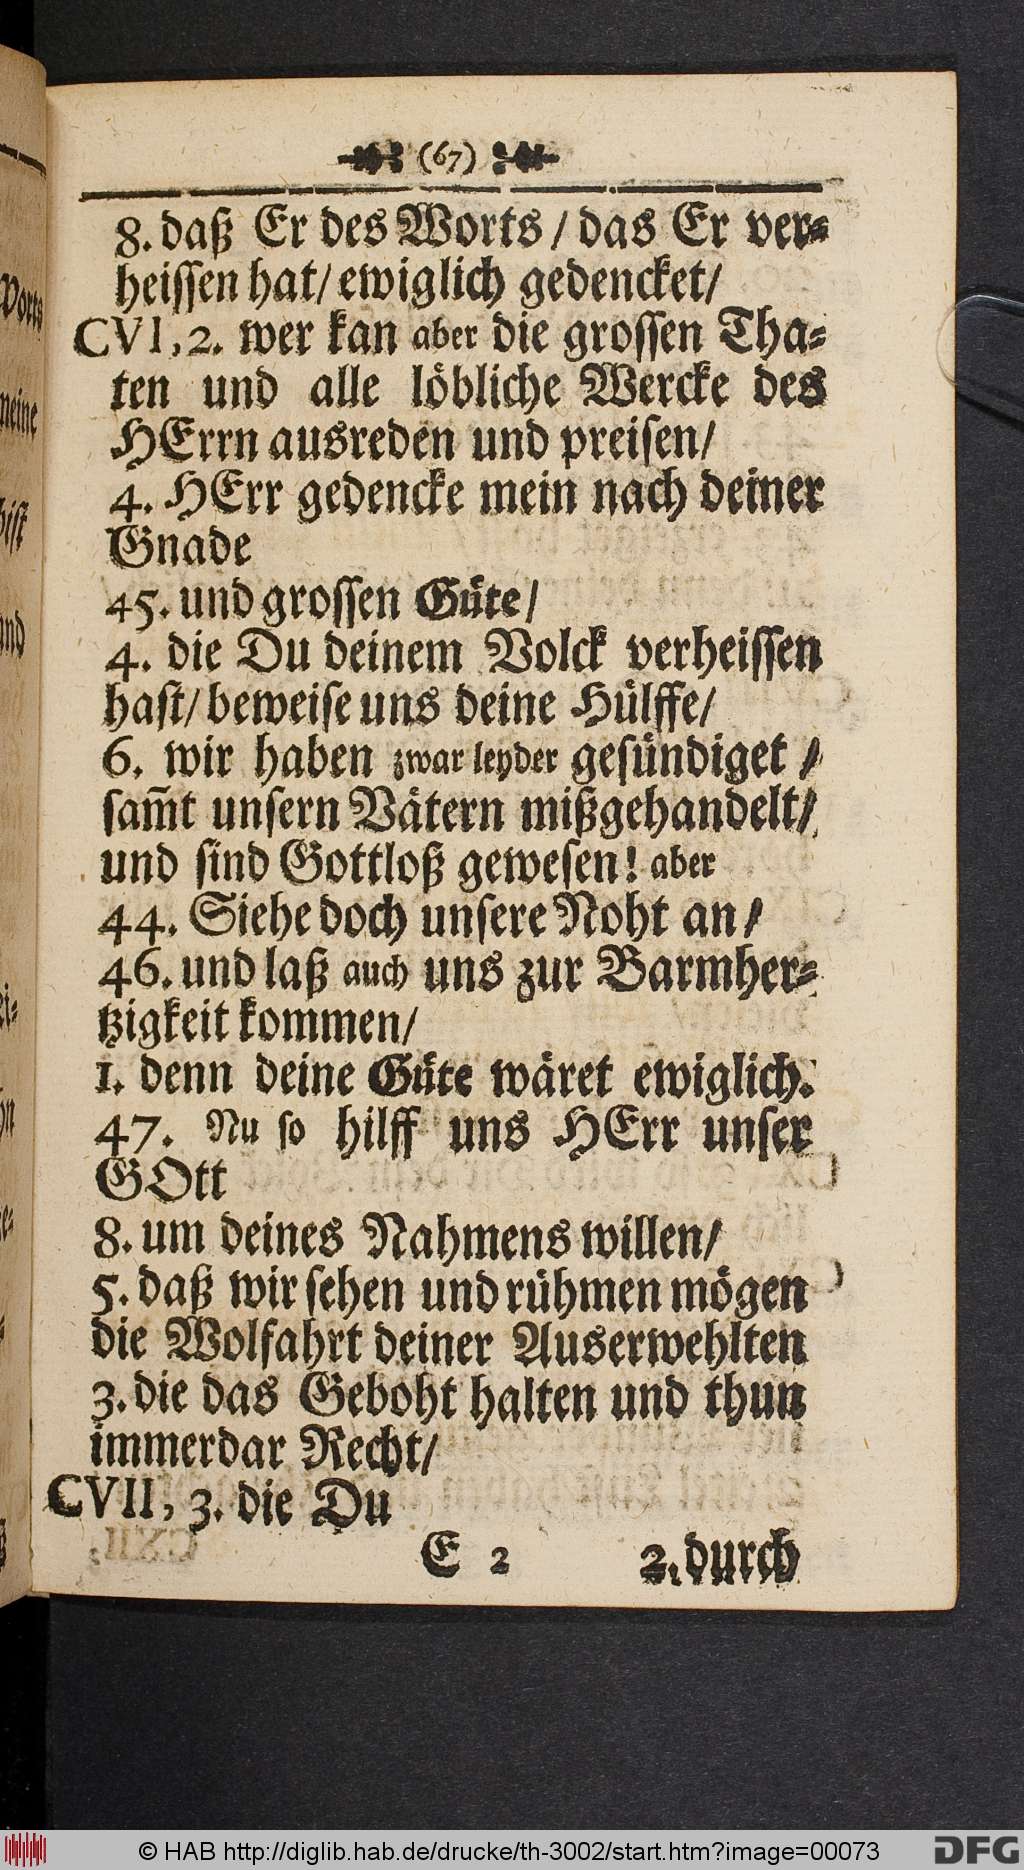 (67)
8. daß Er des Worts / das Er ver⸗
heissen hat / ewiglich gedencket /
CVI, 2. wer kan aber die grossen Tha⸗
ten und alle löbliche Wercke des
HErrn ausreden und preisen /
4. HErr gedencke mein nach deiner
Gnade
45. und grossen Güte /
4. die Du deinem Volck verheissen
hast / beweise uns deine Hülffe /
6. wir haben zwar leyder gesündiget /
sam̃t unsern Vätern mißgehandelt /
und sind Gottloß gewesen! aber
44. Siehe doch unsere Noht an /
46. und laß auch uns zur Barmher⸗
tzigkeit kommen /
1. denn deine Güte wäret ewiglich.
47. Nu so hilff uns HErr unser
GOtt
8. um deines Nahmens willen /
5. daß wir sehen und rühmen mögen
die Wolfahrt deiner Auserwehlten
3. die das Geboht halten und thun
immerdar Recht /
CVII, 3. die Du
E 2 2. durch
© HAB http://diglib.hab.de/drucke/th-3002/start.htm?image=00073
DFG